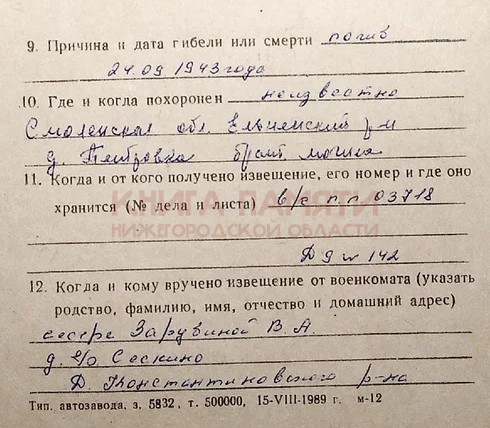 9. Причина и дата гибели или смерти погиб
24.09 1943 года
10. Где и когда похоронен неизвестно
Смоленская обл. Ельненский р-н
д. Петровка братск могила
11. Когда и от кого получено извещение, его номер и где оно
хранится (№ дела и листа) в/с п.п. 03718
КНИГА ПАМЯТИ
НИЖЕГОРОДСКОЙ ОБЛАСТИ
Д 9 л 142
12. Когда и кому вручено извещение от военкомата (указать
родство, фамилию, имя, отчество и домашний адрес)
сестре Зарубиной В. А.
д. Сескино
Д. Константиновского р-на
Тип. автозавода, з. 5832, т. 500000, 15-VIII-1989 г. м-12